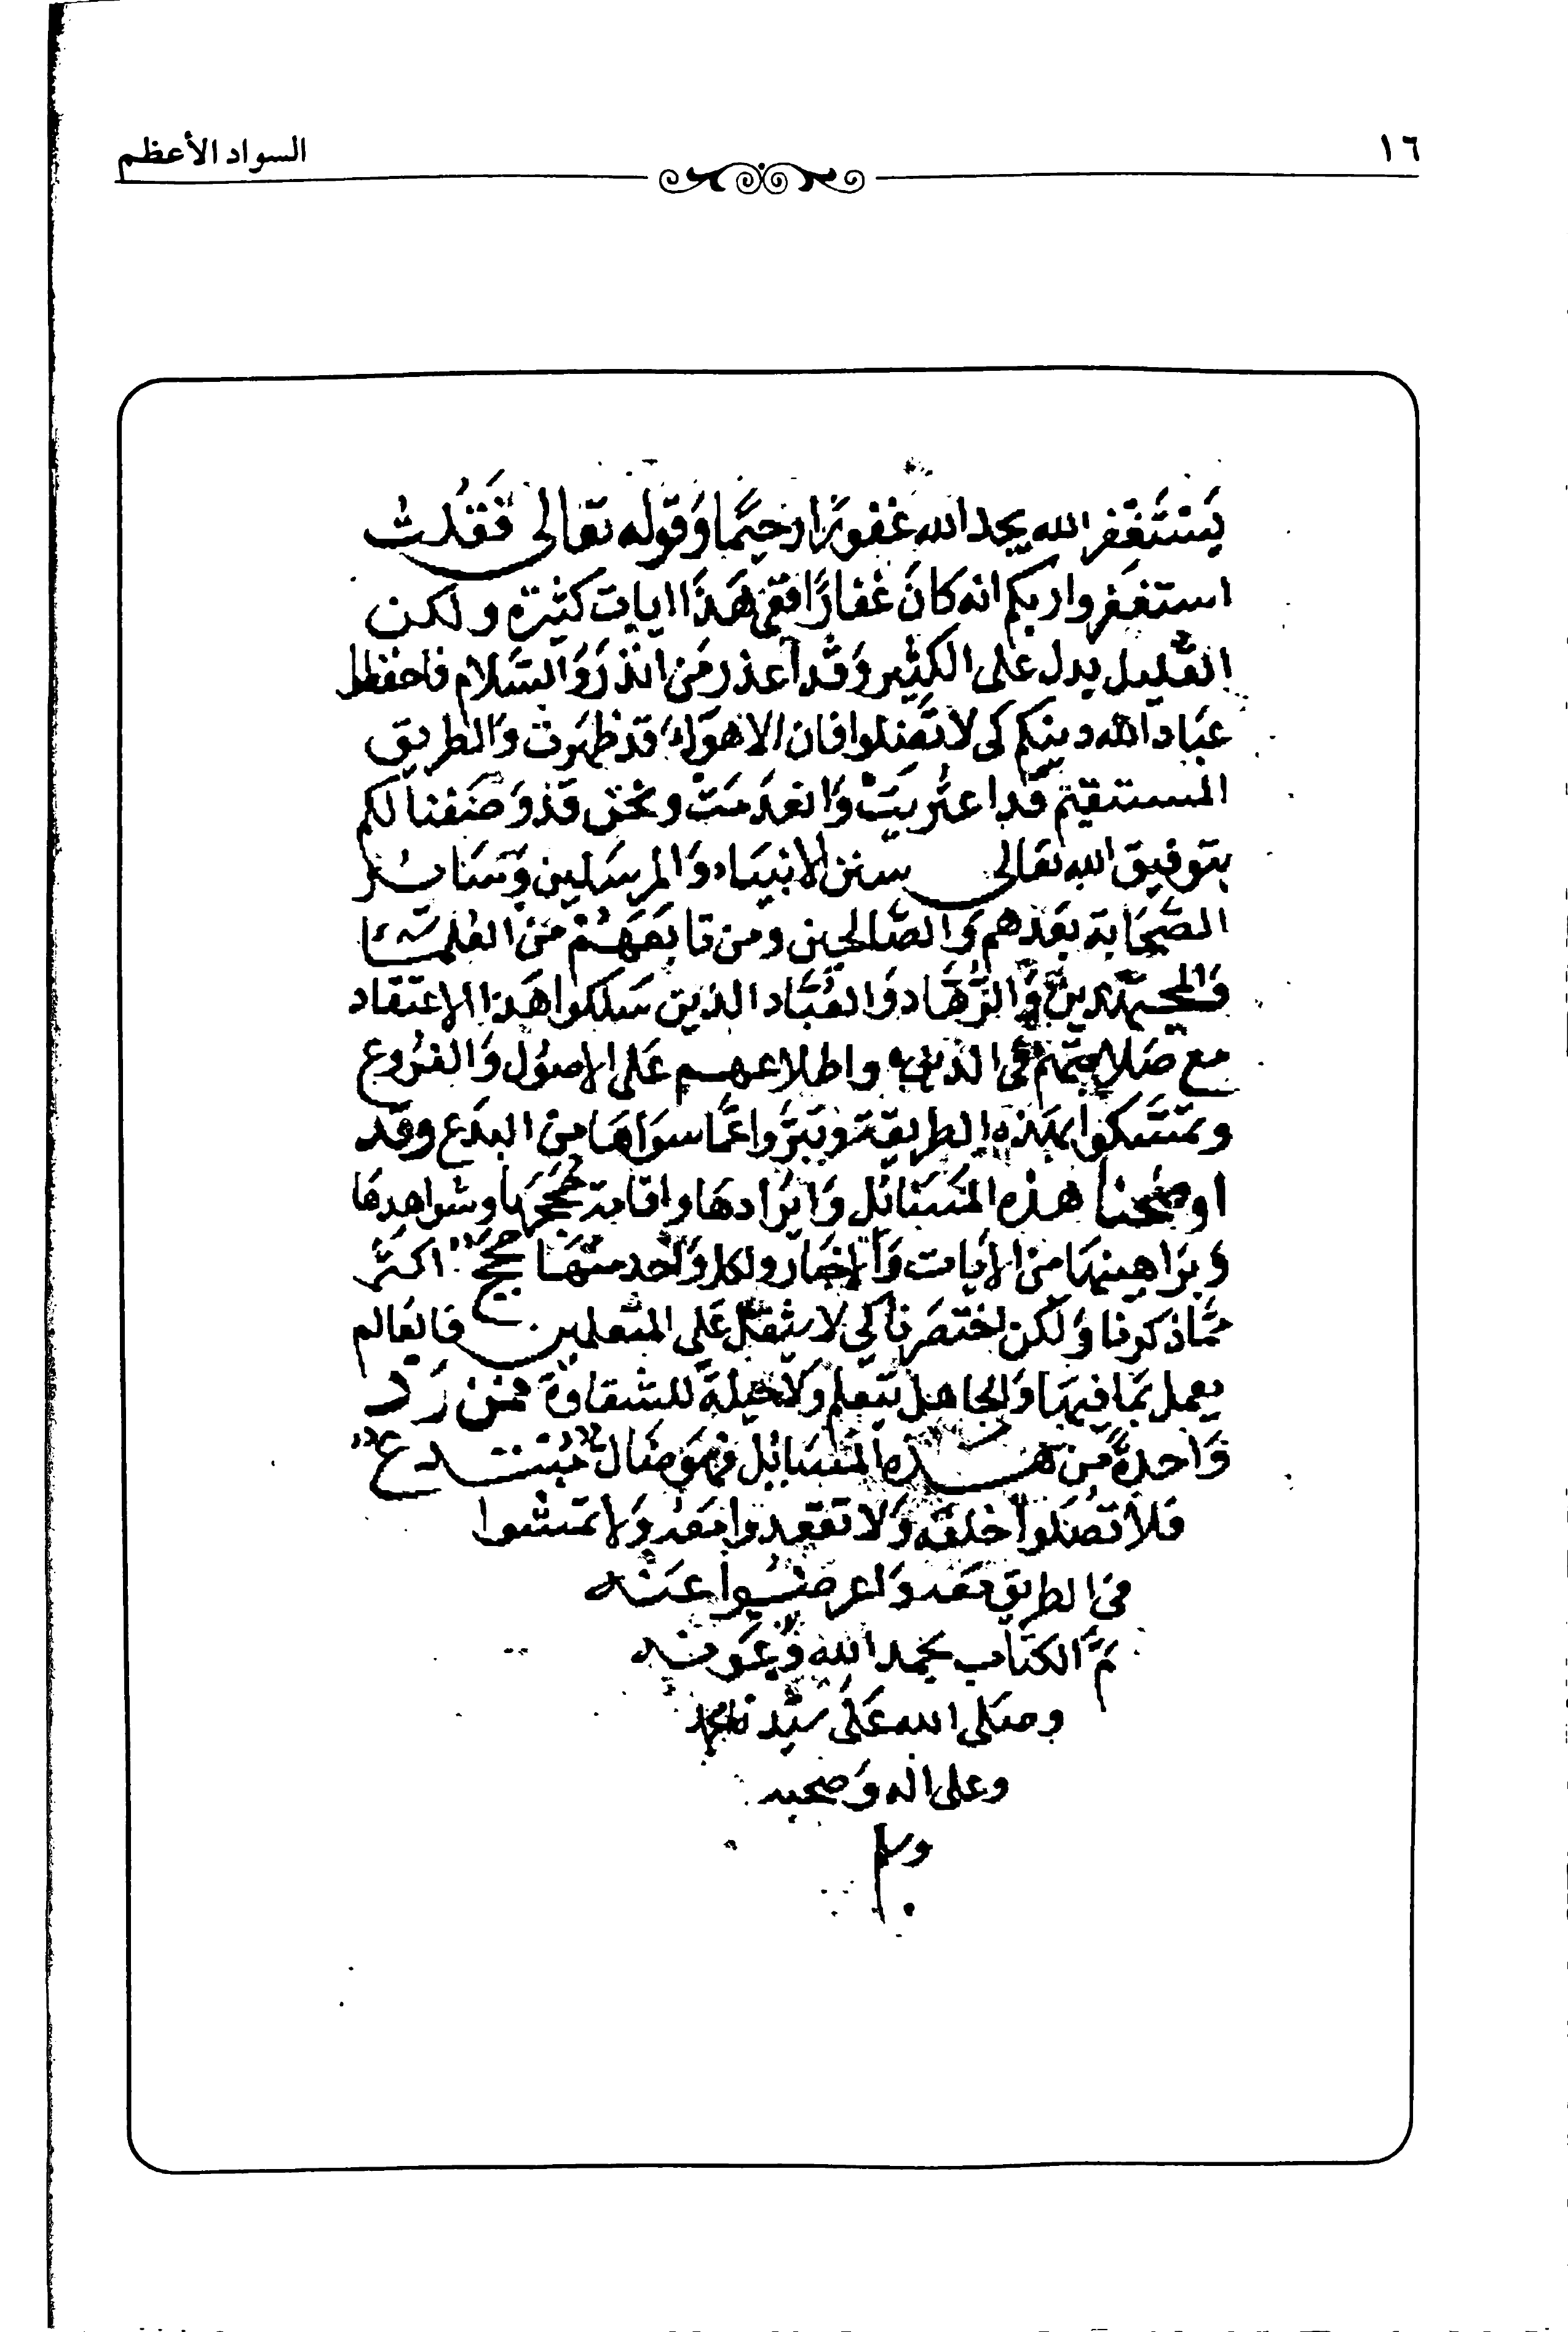 ١٦
السواد الأعظم
يَسْتَغْفِر الله يجد الله غفورًا رحيمًا وَقوله تعالى فَقُلت
استغفروا ربكم انه كانَ غفارًا ففي هَذا ايات كثيرة ولكن
القليل يدل على الكثير وَقد أعذر مَن انذرَ وَالسَّلام فاحفظوا
عبَاد الله دينكم كى لا تَضلوا فان الاهوَاء قد ظهَرت وَالطريق
المستقيم قد اعتريَت وَانعدَمَت ونحن قد وَصَفنا لكم
بتوفيق الله تعالى سنن الانبيَاء وَالمرسَلين وَسَاير
الصَّحَابة بَعدهم وَالصَّالحين ومن تابَعَهُمْ مَن العُلمَاء
وَالمجتهدين وَالزُّهَّاد وَالعُبَّاد الذين سَلكوا هَذا الاعتقاد
مع صَلابتهم في الدين واطلاعهم عَلى الاصوُل وَالفرُوع
وتمسَّكوا بهَذه الطريقة وتبرَّوا عَمَّا سوَاهَا من البدَع وقد
اوضحنا هذه المسَائل وَايرَادهَا واقامة حُججهَا وشواهدهَا
وَبرَاهينهَا من الايات وَالاخبَار ولكل وَاحد منهَا حججَ اكثَر
ممَّا ذكرنا وَلكن اختصَرنا كي لا يثقل عَلى المتعلمين فالعَالم
يعمل بمَا فيهَا وَالجاهل يتعلم ولا حيلَةَ للشقاوَة فمن رَد
وَاحدةً من هذه المسَائل فهوَ ضَال مُبْتدع
فلا تُصَلوا خلفه وَلا تقعدوا معَه وَلا تمشوا
في الطريق معَه وَاعرضُوا عَنْه
تمَّ الكتاب بحمد الله وَعَونه
وصَلى الله عَلَى سَيِّدنا محمد
وعلى اله وَصحبه
وسلم